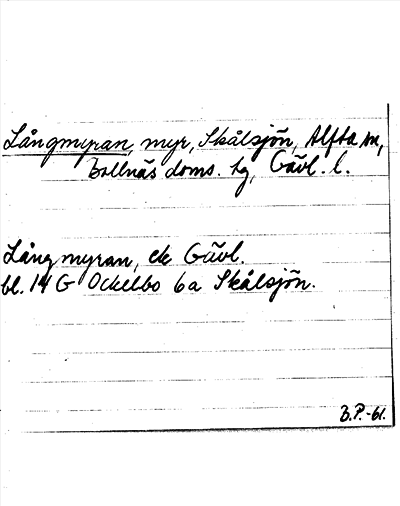 Långmyran, myr, Skålsjön, Alfta sn,
Bollnäs doms. tg, Gävl. l.
Långmyran, ek Gävl.
bl. 14 G Ockelbo 6a Skålsjön.
B.P. -61.